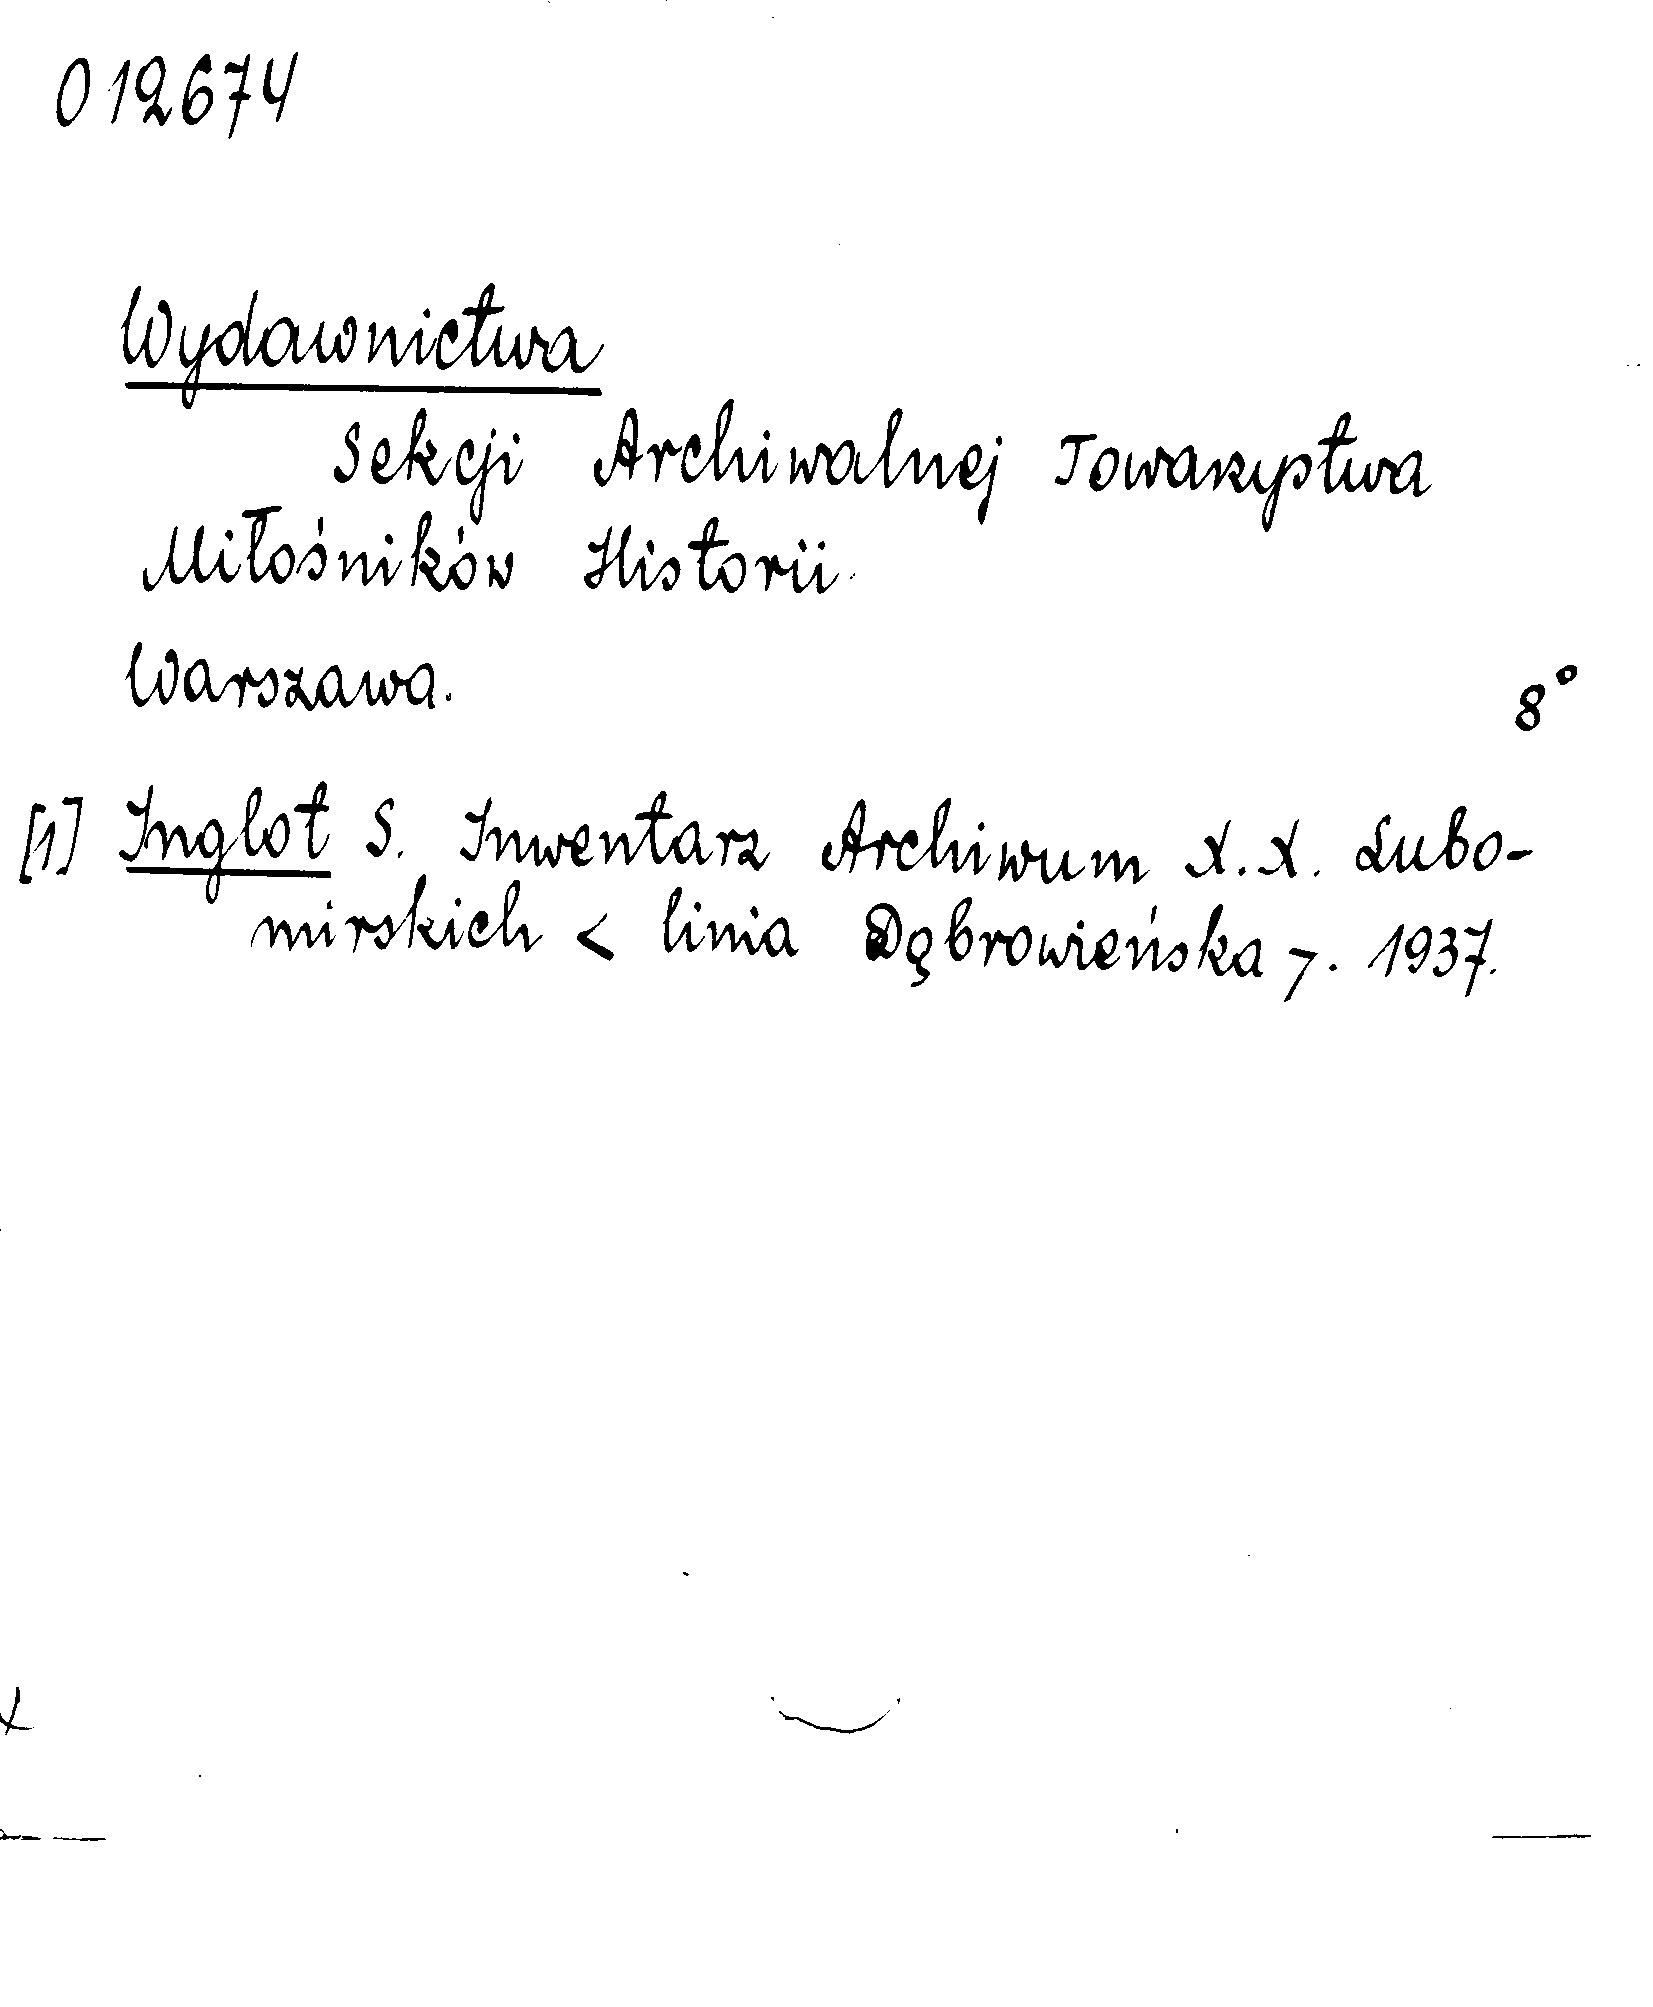 012674
Wydawnictwa
Sekcji Archiwalnej Towarzystwa
Miłośników Historii.
Warszawa.
8°
[1] Inglot S. Inwentarz Archiwum X.X. Lubo-
mirskich < linia Dąbrowieńska >. 1937.